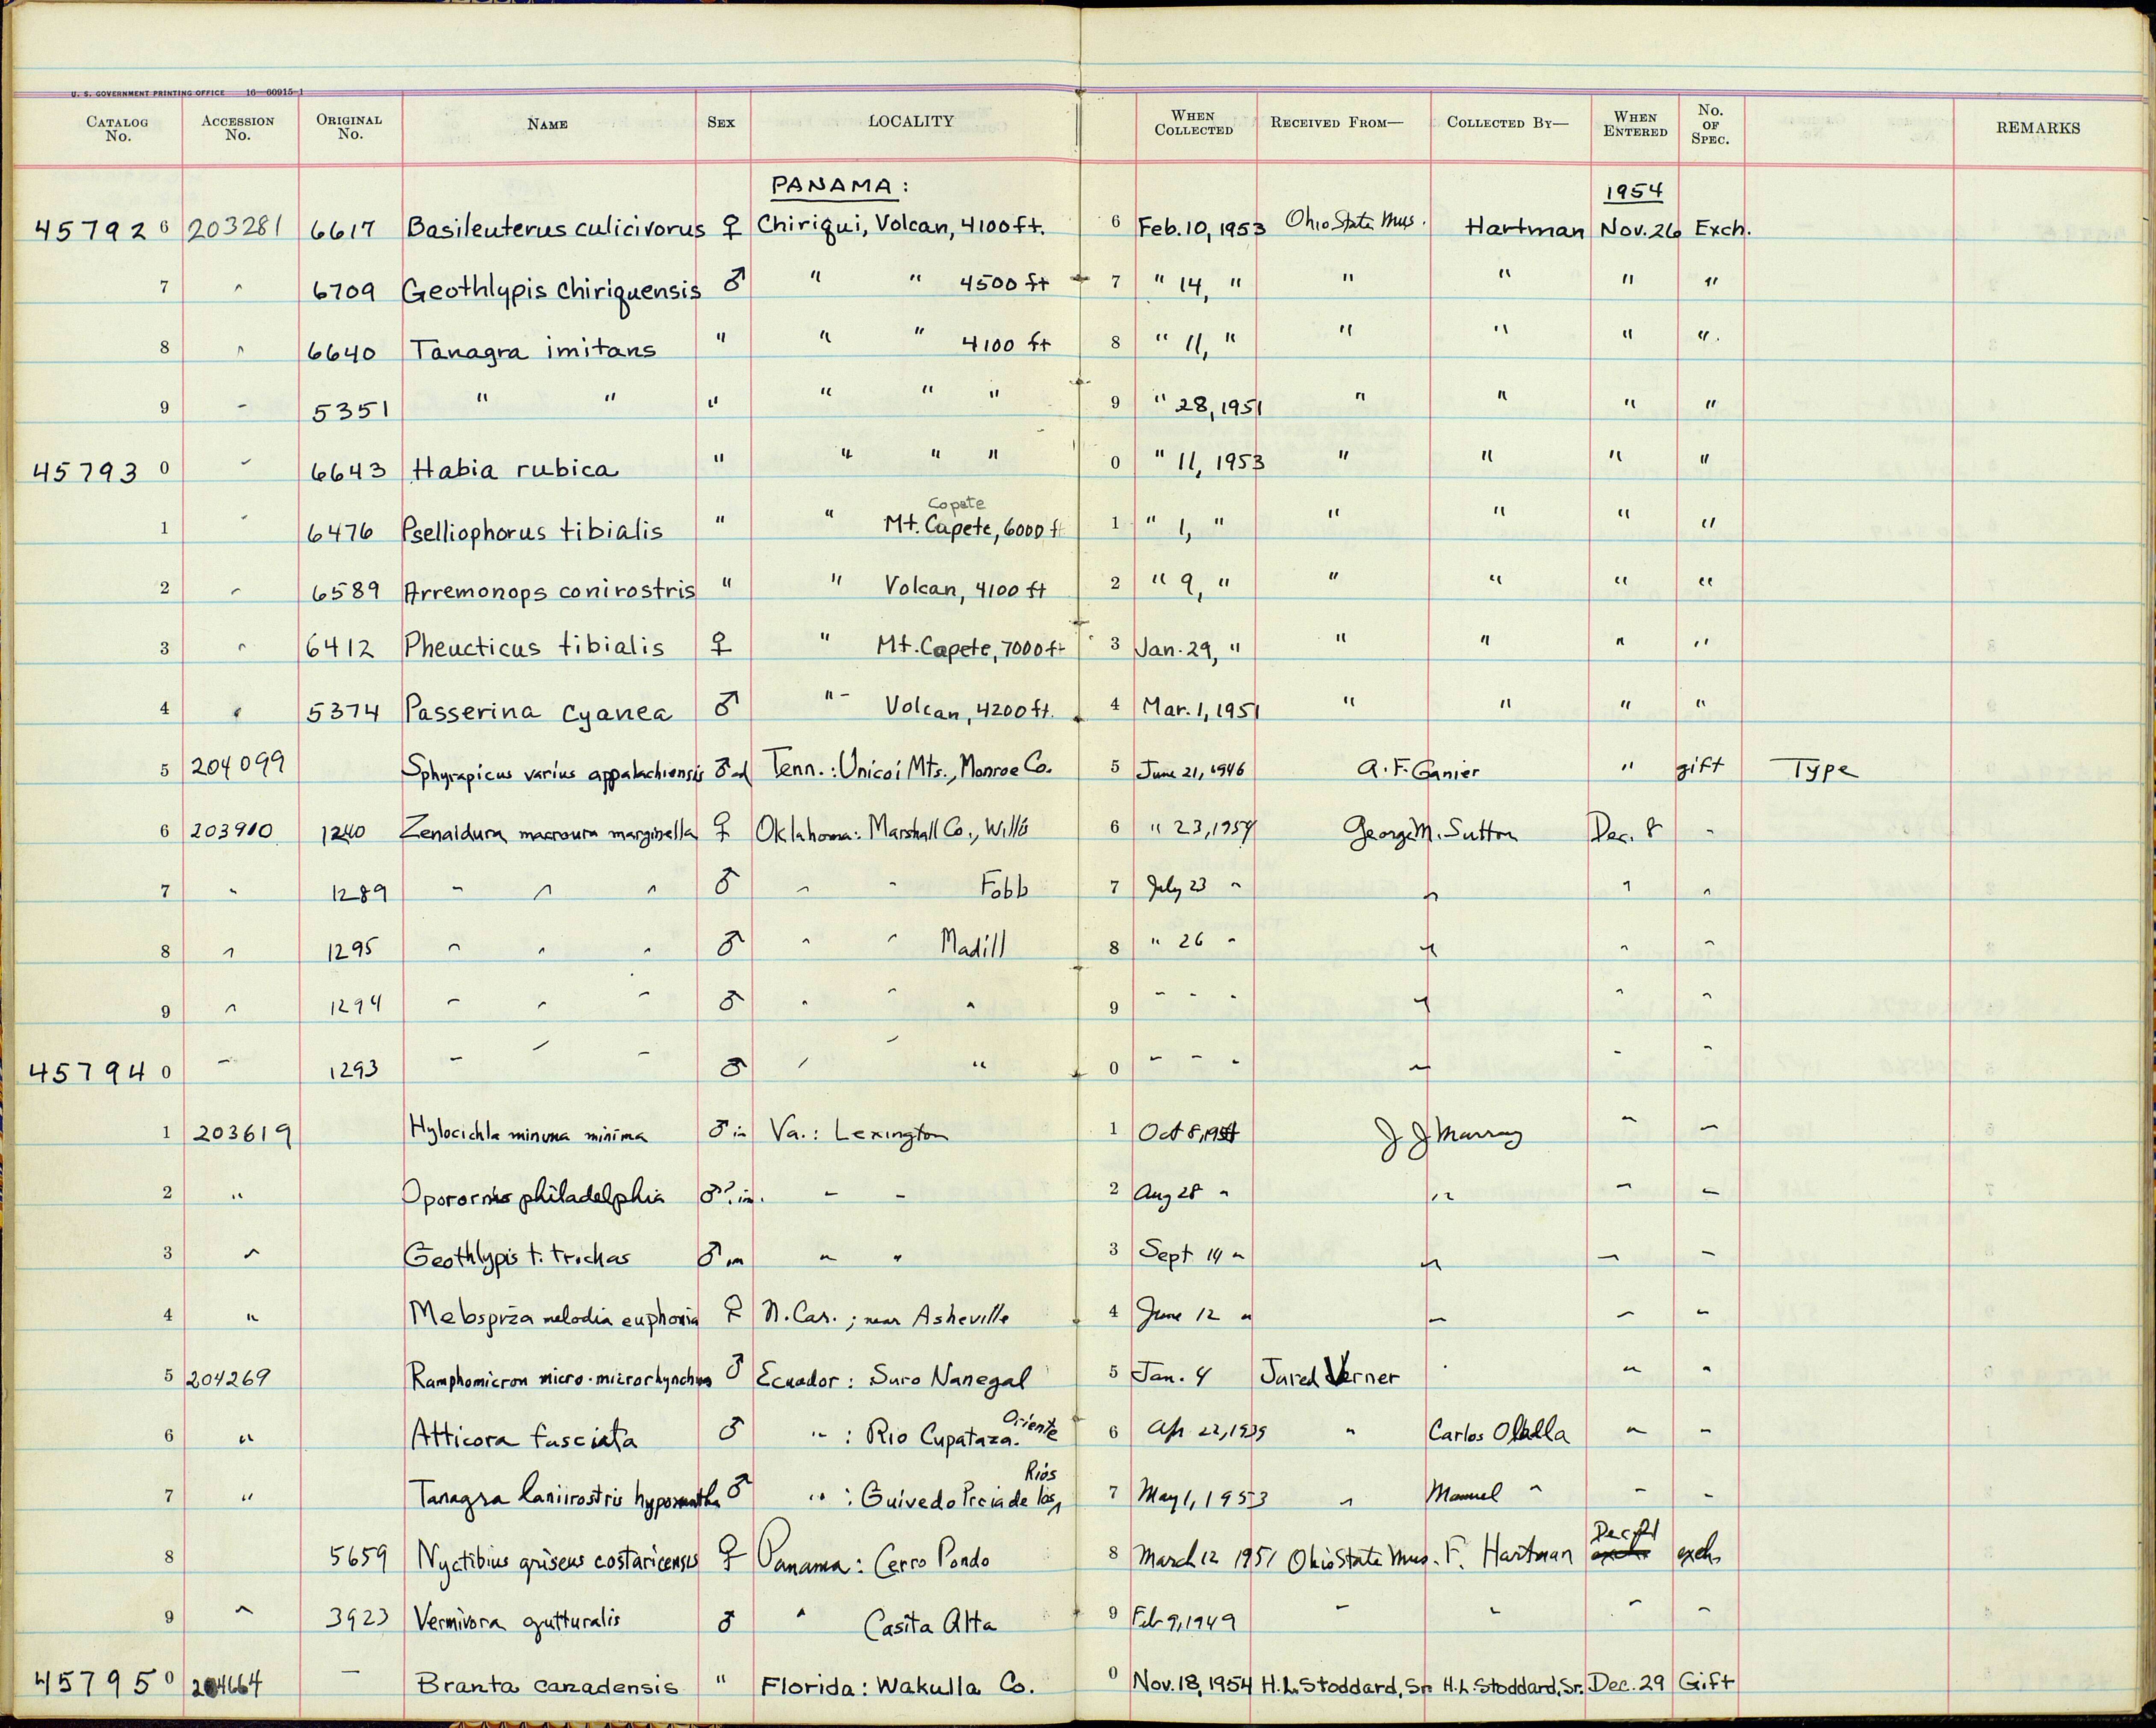 U. S. GOVERNMENT PRINTING OFFICE 16—60915-1
CATALOG No. ACCESSION No. ORIGINAL No. NAME SEX LOCALITY WHEN COLLECTED RECEIVED FROM— COLLECTED BY— WHEN ENTERED No. OF SPEC. REMARKS
PANAMA: 1954
45792 6 203281 6617 Basileuterus culicivorus ♀ Chiriqui, Volcan, 4100 ft. 6 Feb. 10, 1953 Ohio State Mus. Hartman Nov. 26 Exch.
7 " 6709 Geothlypis chiriquensis ♂ " " 4500 ft 7 " 14, " " " " "
8 " 6640 Tanagra imitans " " " 4100 ft 8 " 11, " " " " ".
9 " 5351 " " " " " " 9 " 28, 1951 " " " "
45793 0 " 6643 Habia rubica " " " " 0 " 11, 1953 " " " "
Copete
1 " 6476 Pselliophorus tibialis " " Mt. Capete, 6000 ft 1 " 1, " " " " "
2 " 6589 Arremonops conirostris " " Volcan, 4100 ft 2 " 9, " " " " "
3 " 6412 Pheucticus tibialis ♀ " Mt. Capete, 7000 ft 3 Jan. 29, " " " " "
4 " 5374 Passerina cyanea ♂ " Volcan, 4200 ft. 4 Mar. 1, 1951 " " " "
5 204099 Sphyrapicus varius appalachiensis ♂ ad Tenn.: Unicoi Mts., Monroe Co. 5 June 21, 1946 A. F. Ganier " gift Type
6 203910 1240 Zenaidura macroura marginella ♀ Oklahoma: Marshall Co., Willis 6 " 23, 1954 George M. Sutton Dec. 8 "
7 " 1289 " " " ♂ " " Fobb 7 July 23 " " " "
8 " 1295 " " " ♂ " " Madill 8 " 26 " " " "
9 " 1294 " " " ♂ " " " 9 " " " " " "
45794 0 " 1293 " " " ♂ " " " 0 " " " " " "
1 203619 Hylocichla minima minima ♂ im Va.: Lexington 1 Oct 8, 1954 J J Murray " "
2 " Oporornis philadelphia ♂? im. " " 2 Aug 28 " " " "
3 " Geothlypis t. trichas ♂ im " " 3 Sept 14 " " " "
4 " Melospiza melodia euphonia ♀ N. Car.; near Asheville 4 June 12 " " " "
5 204269 Ramphomicron micro. microrhynchus ♂ Ecuador: Suro Nanegal 5 Jan. 4 Jared Verner " "
Oriente
6 " Atticora fasciata ♂ " : Rio Cupataza. 6 Apr 22, 1939 " Carlos Olalla " "
Rios
7 " Tanagra laniirostris hypoxantha ♂ " : Guivedo Prcia de los, 7 May 1, 1953 " Manuel " " "
Dec 21
8 5659 Nyctibius griseus costaricensis ♀ Panama: Cerro Pondo 8 March 12 1951 Ohio State Mus. F. Hartman exch. exch.
9 " 3923 Vermivora gutturalis ♂ " Casita Alta 9 Feb 9, 1949 " " " "
45795 0 204664 — Branta canadensis " Florida: Wakulla Co. 0 Nov. 18, 1954 H. L. Stoddard, Sr. H. L. Stoddard, Sr. Dec. 29 Gift